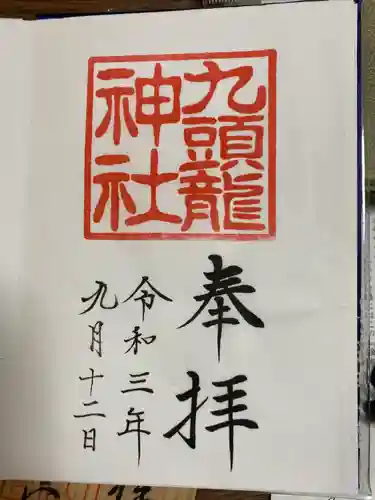 九頭龍
神社
奉拝
令和三年
九月十二日